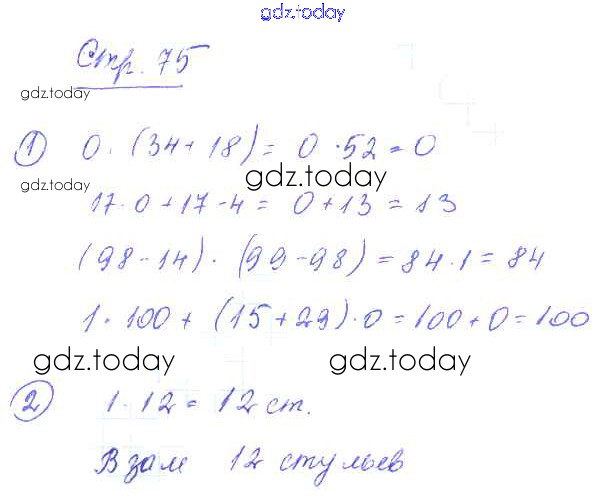 gdz.today
Стр. 75
gdz.today
① 0 · (34 + 18) = 0 · 52 = 0
gdz.today
gdz.today
17 · 0 + 17 - 4 = 0 + 13 = 13
(98 - 14) · (99 - 98) = 84 · 1 = 84
1 · 100 + (15 + 29) · 0 = 100 + 0 = 100
gdz.today
gdz.today
② 1 · 12 = 12 ст.
В зале 12 стульев